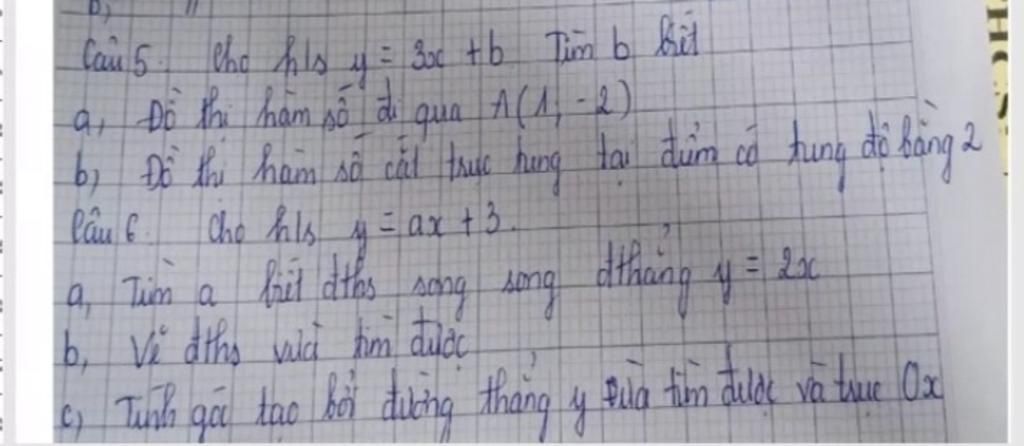 Câu 5. Cho h/s y = 3x + b Tìm b biết
a, Đồ thị hàm số đi qua A(1, -2)
b) Đồ thị hàm số cắt trục tung tại điểm có tung độ bằng 2
Câu 6. Cho h/s y = ax + 3.
a, Tìm a biết đths song song đthẳng y = 2x
b, Vẽ đths vừa tìm được
c) Tính góc tạo bởi đường thẳng y vừa tìm được và trục Ox